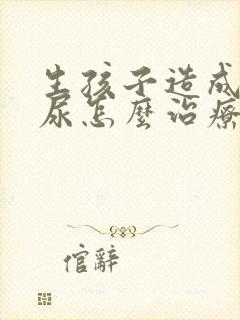 生孩子造成
尿怎麼治療
倌辭